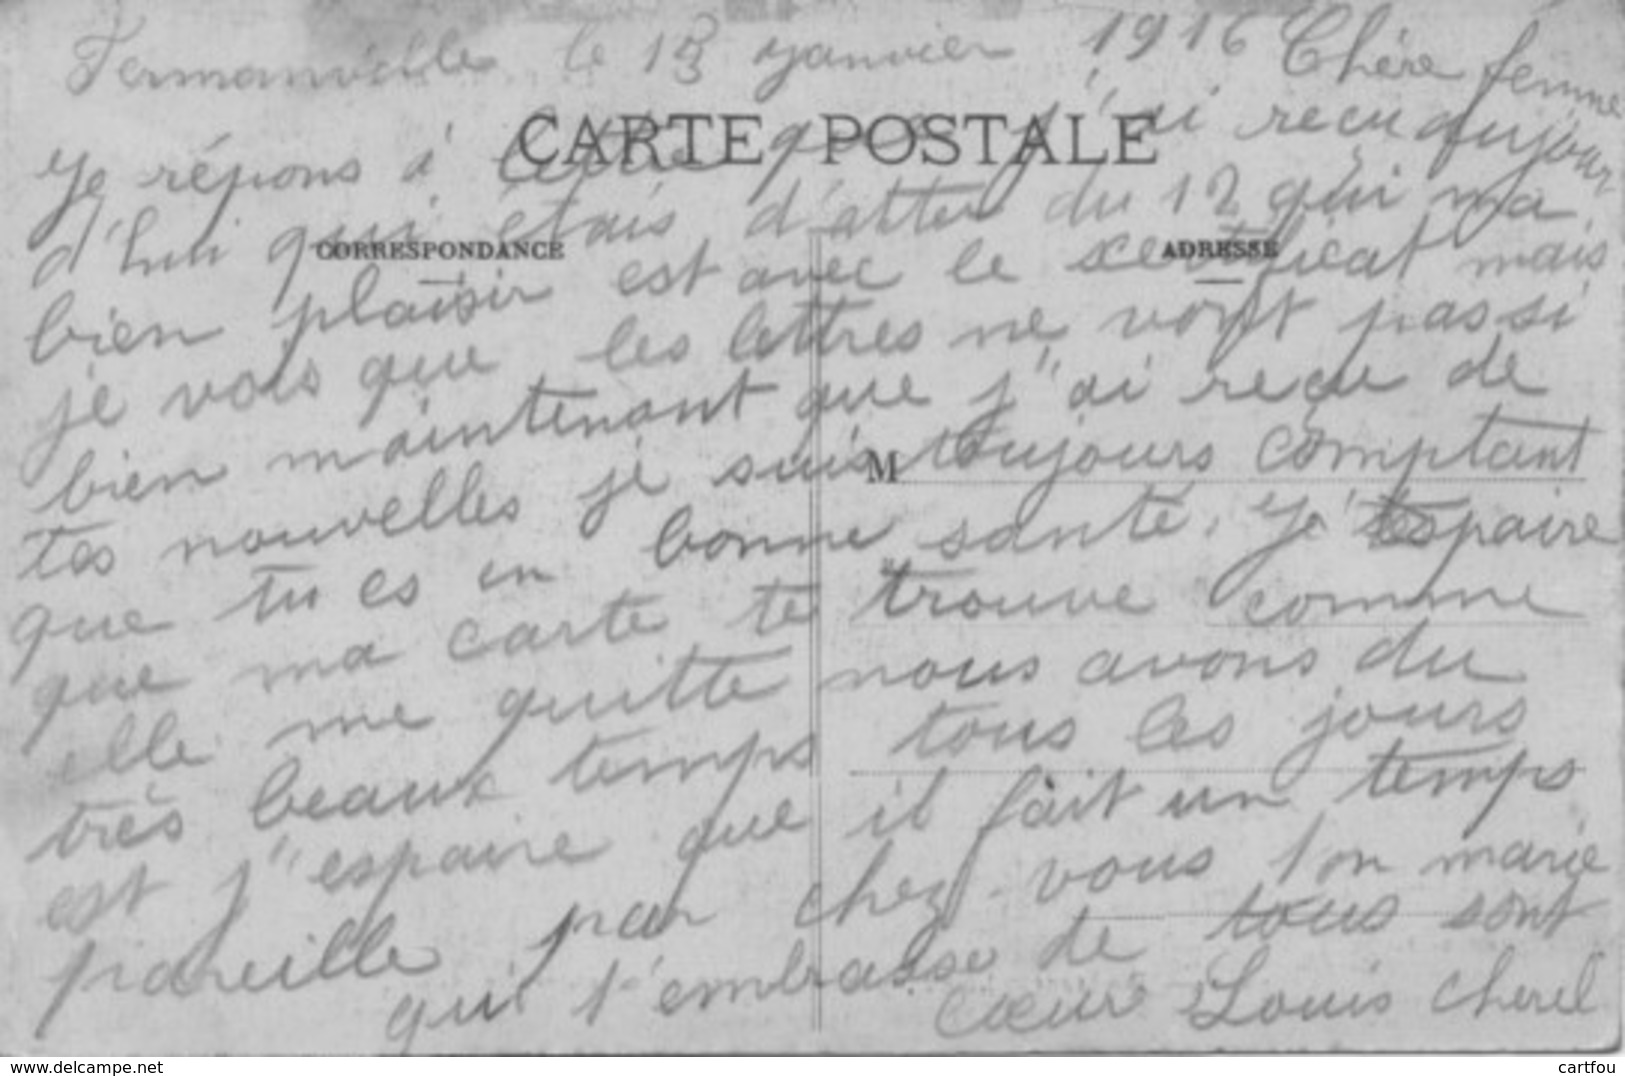 Fermanville le 13 janvier 1916 Chère femme
CARTE POSTALE
Je répons à lettre que j'ai recu aujour
d'hui qui étais d'atter du 12 qui ma
CORRESPONDANCE
ADRESSE
bien plaisir est avec le certificat mais
je vois que les lettres ne vont pas si
bien maintenant que j'ai reçu de
M
tes nouvelles je suis toujours comptant
que tu es en bonne santé, Je éspaire
que ma carte te trouve comme
elle me quitte nous avons du
très beaux temps tous les jours
est j'espaire que il fait un temps
pareille par chez vous ton marie
qui t'embrasse de tous sont
cœur Louis Cherel
www.delcampe.net
cartfou